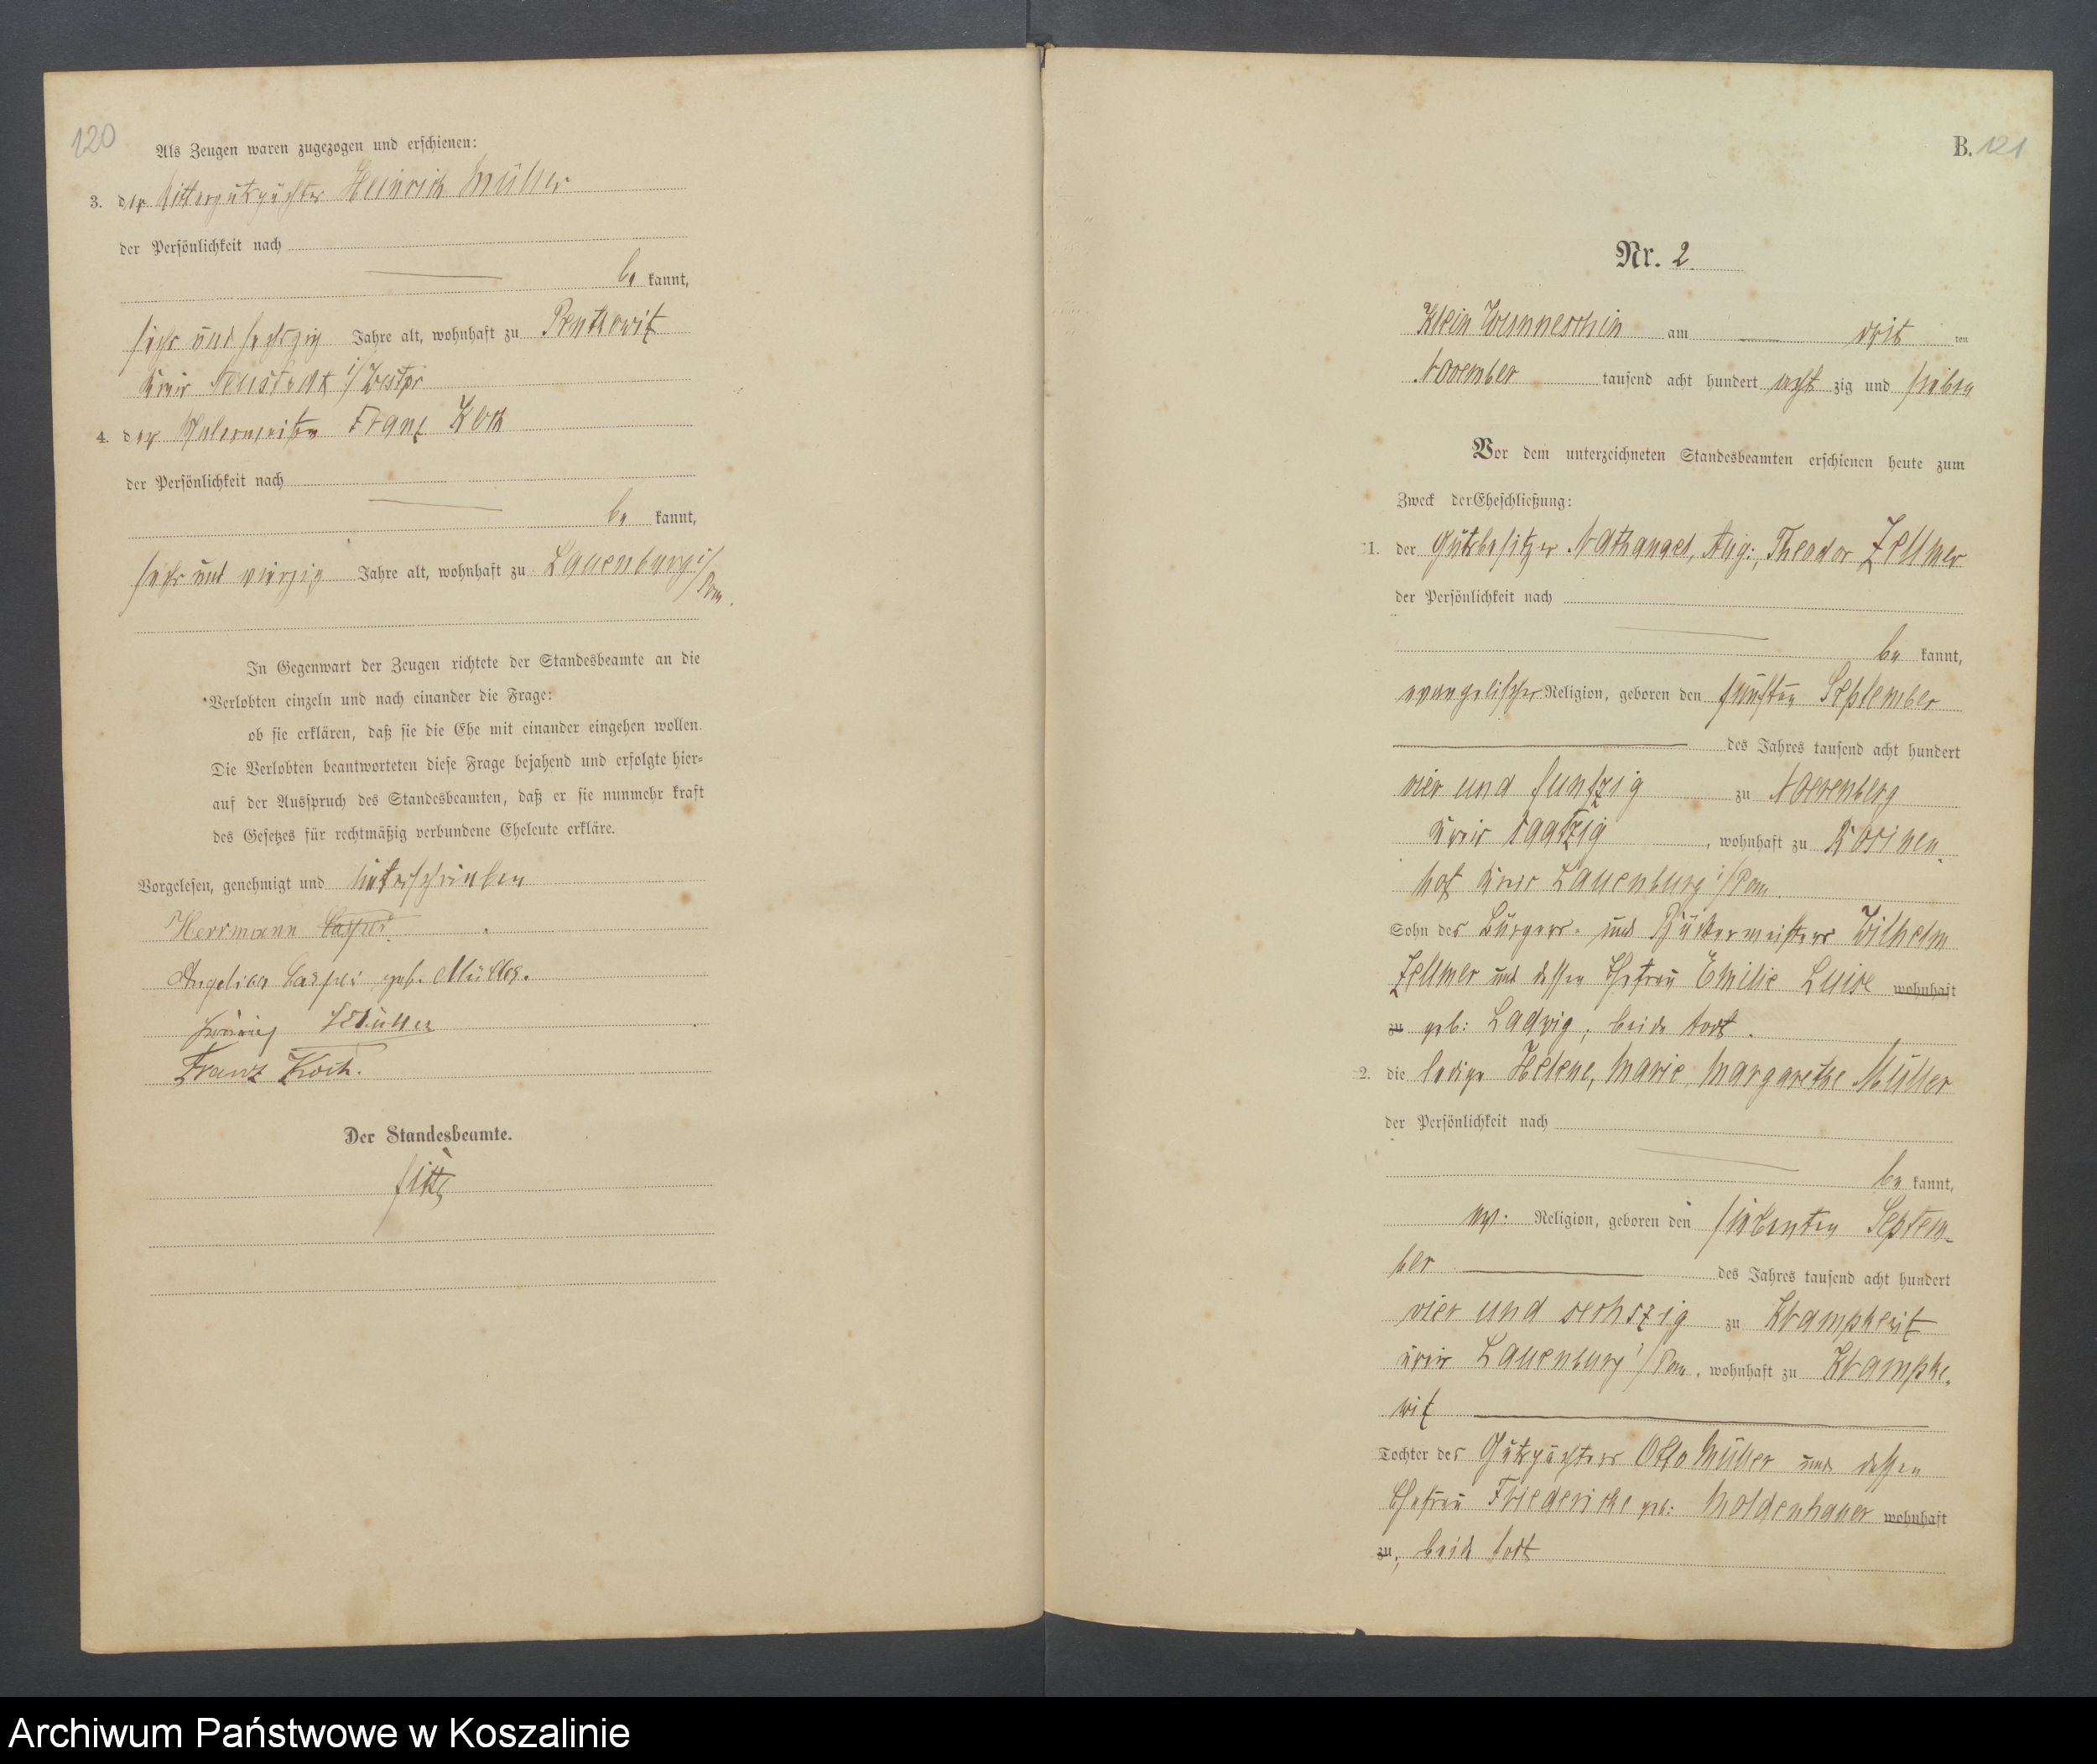 120
Als Zeugen waren zugezogen und erschienen:
3. der Rittergutspächter Heinrich Müller
der Persönlichkeit nach
be kannt,
sechs und sechszig Jahre alt, wohnhaft zu Rentkewitz
Kreis Neustadt i/Westpr
4. der Malermeister Franz Koch
der Persönlichkeit nach
be kannt,
sechs und vierzig Jahre alt, wohnhaft zu Lauenburg i/
Pom.
In Gegenwart der Zeugen richtete der Standesbeamte an die
Verlobten einzeln und nach einander die Frage:
ob sie erklären, daß sie die Ehe mit einander eingehen wollen.
Die Verlobten beantworteten diese Frage bejahend und erfolgte hier-
auf der Ausspruch des Standesbeamten, daß er sie nunmehr kraft
des Gesetzes für rechtmäßig verbundene Eheleute erkläre.
Vorgelesen, genehmigt und unterschrieben
Herrmann Casper.
Angelica Casper geb. Müller.
Heinrich Müller
Franz Koch.
Der Standesbeamte.
B. 121
Nr. 2.
Klein Wunneschin am drit ten
November tausend acht hundert acht zig und sieben
Vor dem unterzeichneten Standesbeamten erschienen heute zum
Zweck der Eheschließung:
1. der Gutsbesitzer Nathanael, Aug:, Theodor Zellmer
der Persönlichkeit nach
be kannt,
evangelischer Religion, geboren den fünften September
des Jahres tausend acht hundert
vier und funfzig zu Noerenberg
Kreis Saatzig, wohnhaft zu Rosinen
hof Kreis Lauenburg i/Pom.
Sohn des Bürgers- und Bäckermeisters Wilhelm
Zellmer und dessen Ehefrau Emilie Luise wohnhaft
zu geb: Ladwig, beide todt.
2. die ledige Helene, Marie, Margarethe Müller
der Persönlichkeit nach
be kannt,
ev. Religion, geboren den siebenten Septem-
ber des Jahres tausend acht hundert
vier und sechszig zu Krampkewitz
Kreis Lauenburg i/Pom, wohnhaft zu Krampke-
witz
Tochter des Gutspächters Otto Müller und dessen
Ehefrau Friedericke geb: Moldenhauer wohnhaft
zu, beide todt
Archiwum Państwowe w Koszalinie